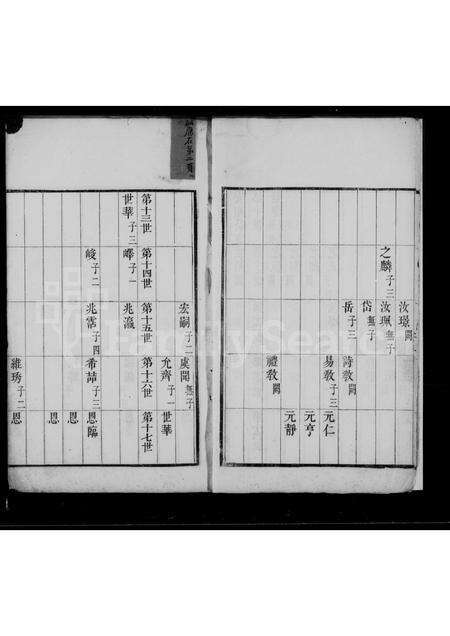 汝璟 闕
之麟 子三
汝珮 無子
岱 無子
岳 子三
詩敎 闕
易敎 子三
元仁
元亨
禮敎 闕
元靜
宏嗣 子二
虞聞 無子
允齊 子一
世華
第十三世
第十四世
第十五世
第十六世
第十七世
世華 子三
嶧 子一
兆瀛
峻 子二
兆霑 子四
希喆 子三
恩臨
恩
恩
維琇 子二
恩
FamilySearch